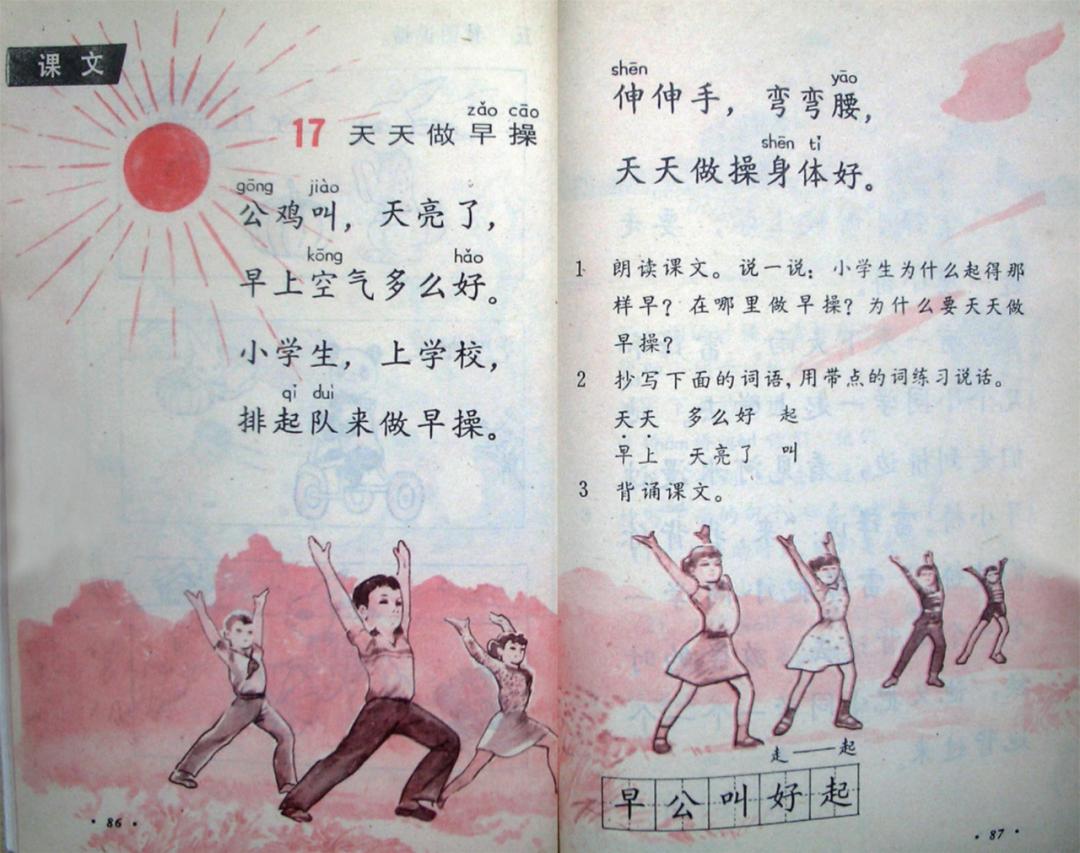 课文
zǎo cāo
17 天天做早操
gōng jiào
公鸡叫，天亮了，
kōng hǎo
早上空气多么好。
小学生，上学校，
qǐ duì
排起队来做早操。
· 86 ·
shēn yāo
伸伸手，弯弯腰，
shēn tǐ
天天做操身体好。
1 朗读课文。说一说：小学生为什么起得那
样早？在哪里做早操？为什么要天天做
早操？
2 抄写下面的词语，用带点的词练习说话。
天天 多么好 起
早上 天亮了 叫
3 背诵课文。
走——起
早公叫好起
· 87 ·